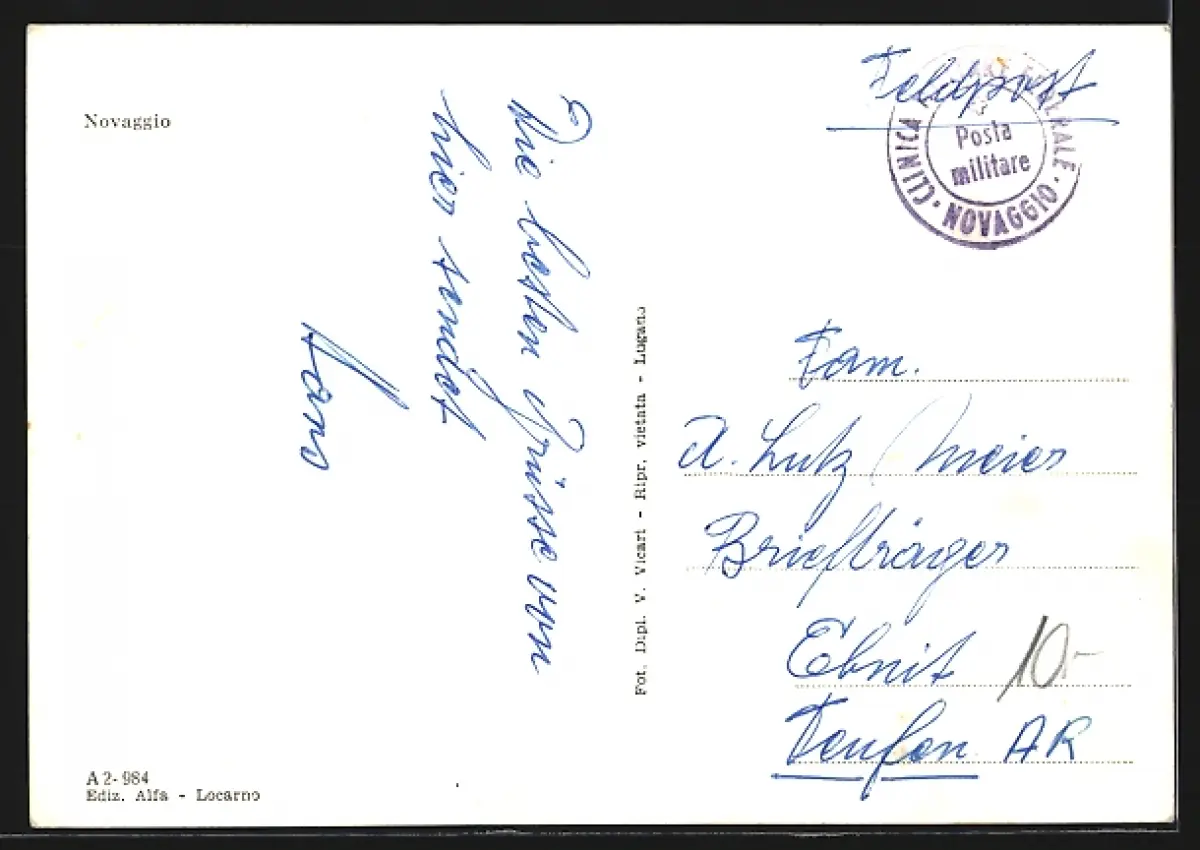 Novaggio
Die besten Grüsse von
hier sendet
Hans
A 2 - 984
Ediz. Alfa - Locarno
Fot. Dipl. V. Vicari - Ripr. vietata - Lugano
Feldpost
CLINICA MILITARE FEDERALE · NOVAGGIO ·
Posta
militare
Fam.
A. Lutz / Meier
Briefträger
Ebnit
10.-
Teufen AR